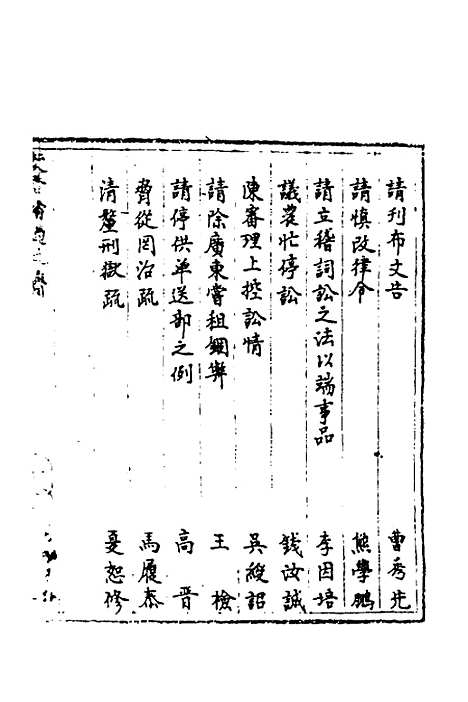 請刊布文告 曹秀先
請慎改律令 熊學鵬
請立稽詞訟之法以端事品 李因培
議農忙停訟 錢汝誠
陳審理上控訟情 吳綬詔
請除廣東當租錮弊 王檢
請停供單送部之例 高晉
脅從罔治疏 馬履泰
清釐刑獄疏 戞恕修